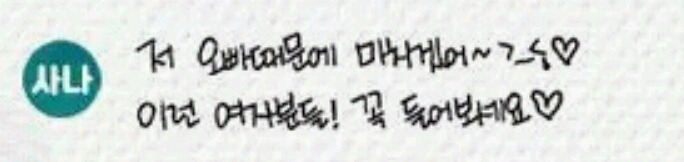 사나
저 오빠때문에 미치겠어~ㄱ_ㅎ♡
이런 여자분들! 꼭 들어보세요♡